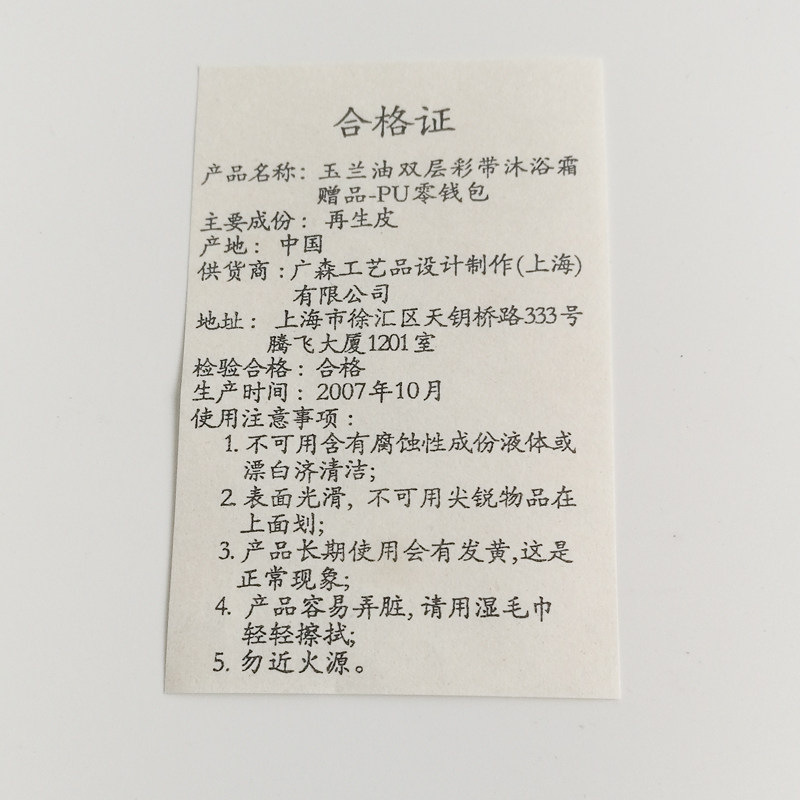 合格证
产品名称：玉兰油双层彩带沐浴霜
赠品-PU零钱包
主要成份：再生皮
产地：中国
供货商：广森工艺品设计制作(上海)
有限公司
地址：上海市徐汇区天钥桥路333号
腾飞大厦1201室
检验合格：合格
生产时间：2007年10月
使用注意事项：
1. 不可用含有腐蚀性成份液体或
漂白济清洁;
2. 表面光滑, 不可用尖锐物品在
上面划;
3. 产品长期使用会有发黄,这是
正常现象;
4. 产品容易弄脏, 请用湿毛巾
轻轻擦拭;
5. 勿近火源。